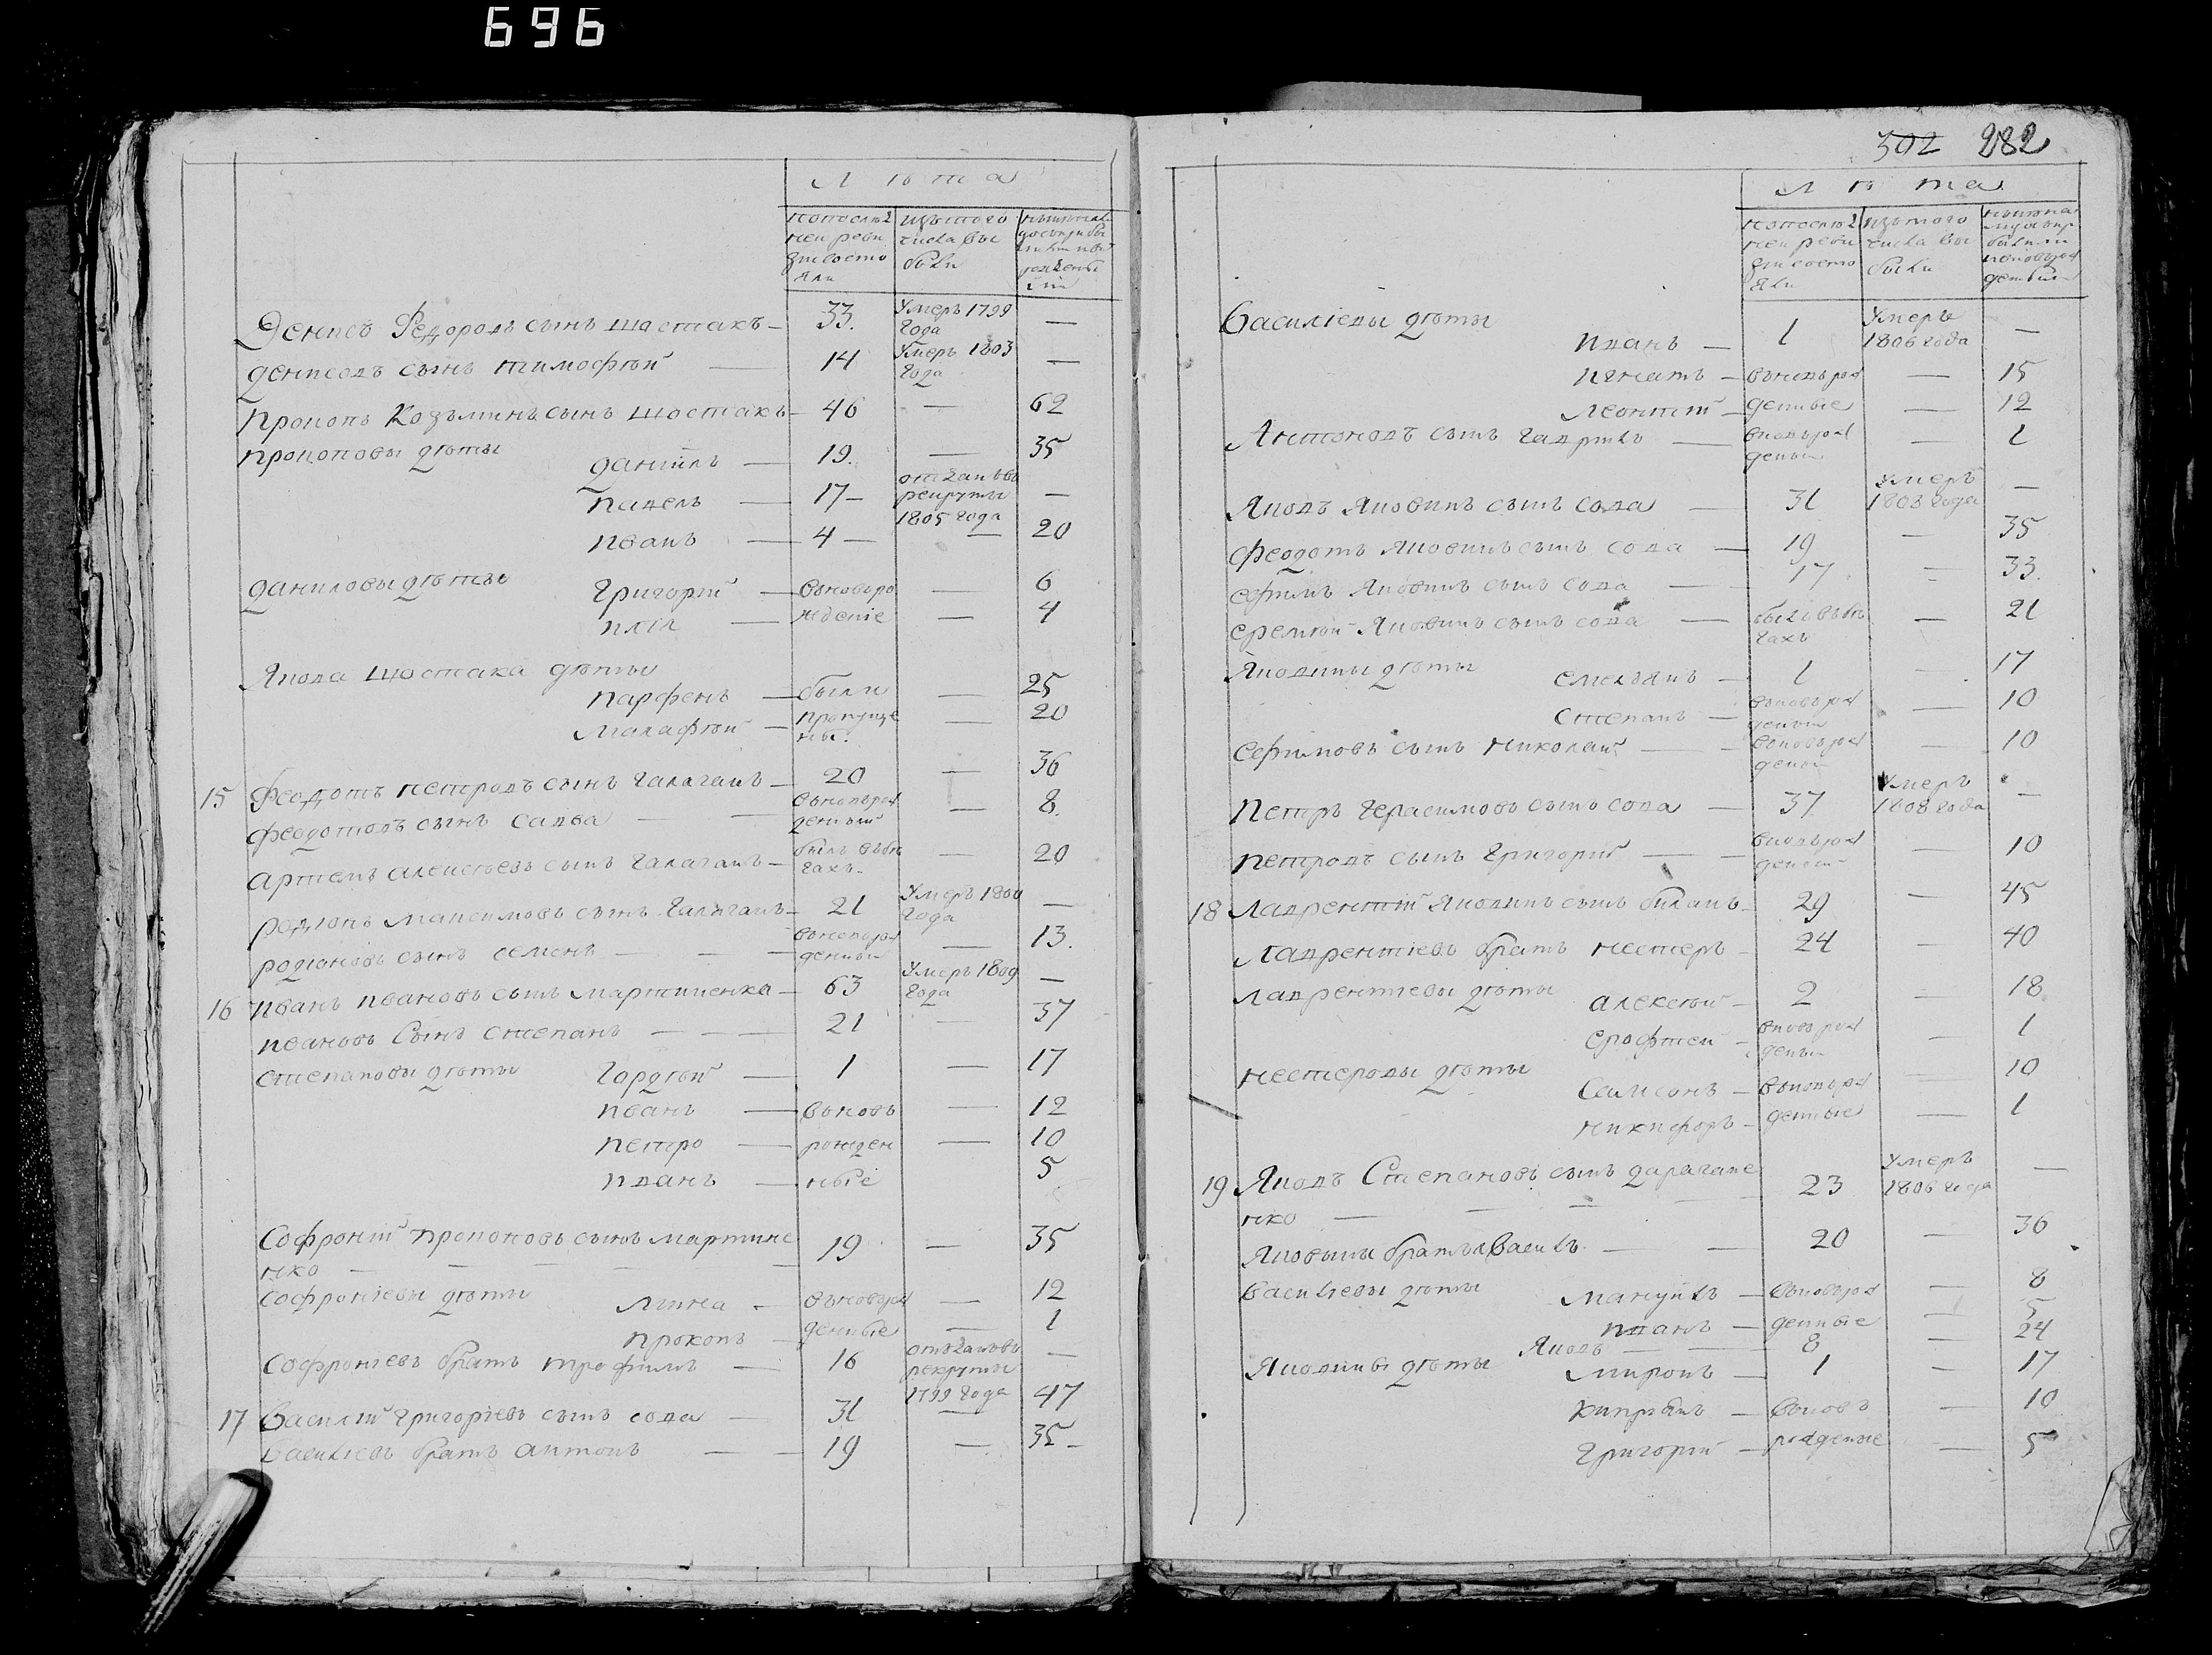 696
Лѣта
попослѣд ней реви зіи состо яли
изътого числа вы были
Денисъ Федоровъ сынъ шостакъ — 33. Умеръ 1799 года —
Денисовъ сынъ тимофѣй — 14 Умеръ 1803 года —
Прокопъ Козьминъ сынъ шостакъ — 46 — 62
Прокоповы дѣты Данiилъ — 19. — 35
Павелъ — 17 — отданъ въ рекруты 1805 года —
Иванъ — 4 — — 20
Даниловы дѣты Григорій — вновьро — 6
Илiя — жденіе — 4
Якова шостака дѣты
Парфенъ — были — 25
Малафѣй — пропуще ны. — 20
15 Феодотъ петровъ сынъ Галаганъ — 20 — 36
Феодотовъ сынъ Савва — — вновьрож денный — 8.
Артемъ алексѣевъ сынъ Галаганъ — былъ въбѣ гахъ. — 20
родіонъ Максимовъ сынъ Галаганъ — 21 Умеръ 1800 года —
родіоновъ сынъ семенъ — — — вновьрож денный — 13.
16 Иванъ Ивановъ сынъ мартиненка — 63 Умеръ 1809 года —
Ивановъ Сынъ степанъ — — — 21 — 37
степановы дѣты Гордѣй — 1 — 17
Иванъ — вновь — 12
Петро — рожден — 10
Иванъ — ныіе 5
Софроній Прокоповъ сынъ мартине 19 — 35
нко — — — — —
Софроніевы дѣты Мина — вновьрож — 12
Прокопъ — денные — 1
Софроніевъ братъ трофимъ — 16 отъданъвъ рекруты 1799 года —
17 Василій Григоріевъ сынъ сова — 31 — 47
васильевъ братъ антонъ — — 19 — 35 —
302 282
Лѣта
попослѣд ней реви зіи состо яли
изътого числа вы были
Василіевы дѣты
Иванъ — 1 Умеръ 1806 года —
Игнатъ — вновьрож — 15
Леонтій — денные — 12
Антоновъ сынъ Гаврилъ — вновьрож денный — 1
Яковъ Яковинъ сынъ Сова — 31 Умеръ 1803 года —
Феодотъ Яковинъ сынъ сова — 19 — 35
Ефимъ Яковинъ сынъ сова — 17. — 33.
еремѣй Яковинъ сынъ сова — былъ въбѣ гахъ — 21
Яковины дѣты Емельянъ — 1 — 17
Степанъ — вновьрож денный — 10
Ефимовъ сынъ николай — — вновьрож денной — 10
Петръ Герасимовъ сынъ сова — 37 Умеръ 1808 года —
Петровъ сынъ Григорій — — вновьрож денный — 10
18 Лаврентій Яковинъ сынъ биланъ — 29 — 45
Лаврентіевъ братъ нестеръ — 24 — 40
Лаврентіевы дѣты алексѣй — 2 — 18
Ерофтей — вновьрож денный — 1
нестеровы дѣты Самсонъ — вновьрож — 10
никифоръ — денные — 1
19 Яковъ Степановъ сынъ дарагане 23 Умеръ 1806 года —
нко — — — —
Яковины братъ Василь — — 20 — 36
васильевы дѣты Мануйлъ — вновьрож — 8
Иванъ — денные — 5
Яковъ — — 8 — 24
Яковины дѣты миронъ — 1 — 17
Кипріянъ — вновь — 10
Григорій — рожденые — 5